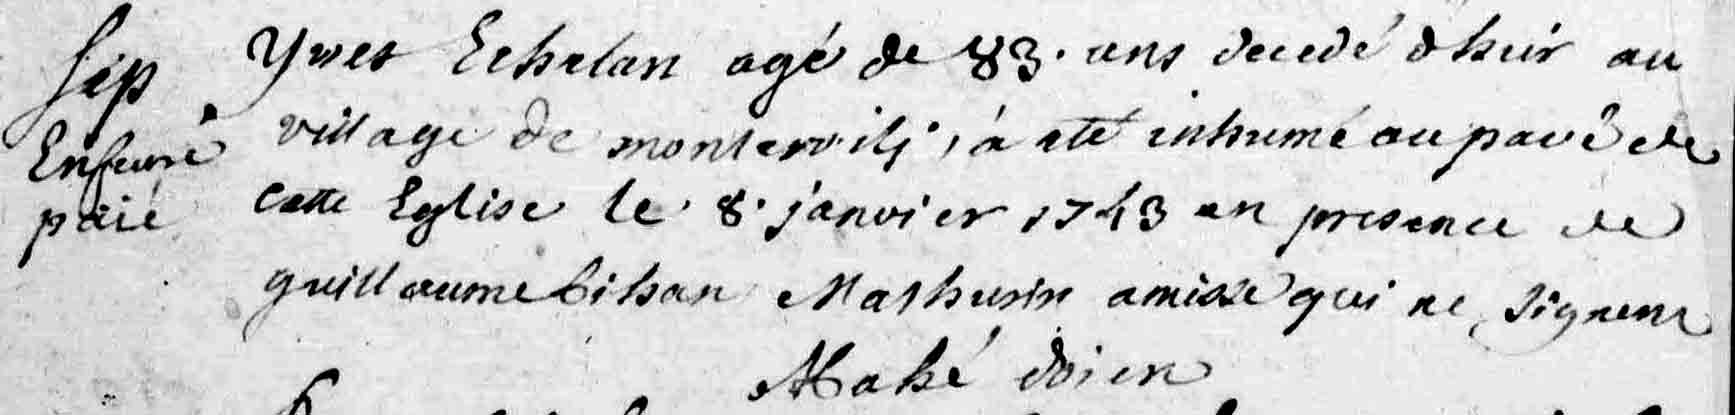 Sep
Enfeuré
paié
Yves Echelan agé de 83. ans decedé d'huir au
village de monteroilj, a eté inhumé au pavé de
cette Eglise le 8. janvier 1743 en presence de
guillaume bihan Mathurin amisse qui ne signent
Mahé doien